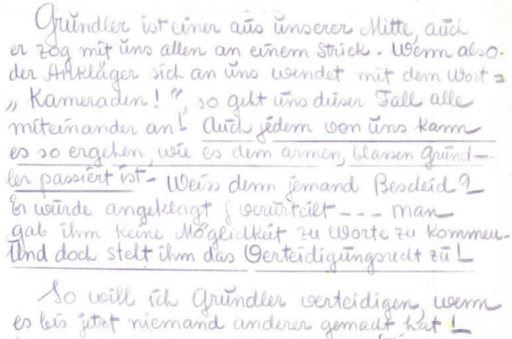 Gründler ist einer aus unserer Mitte, auch
er zog mit uns allen an einem Strick. Wenn also
der Ankläger sich an uns wendet mit dem Wort =
„Kameraden!“, so geht uns dieser Fall alle
miteinander an! Auch jedem von uns kann
es so ergehen, wie es dem armen, blassen Gründ-
ler passiert ist - Weiss denn jemand Bescheid?
Er wurde angeklagt & verurteilt --- man
gab ihm keine Möglichkeit zu Worte zu kommen.
Und doch steht ihm das Verteidigungsrecht zu!
So will ich Gründler verteidigen, wenn
es bis jetzt niemand anderer gemacht hat!